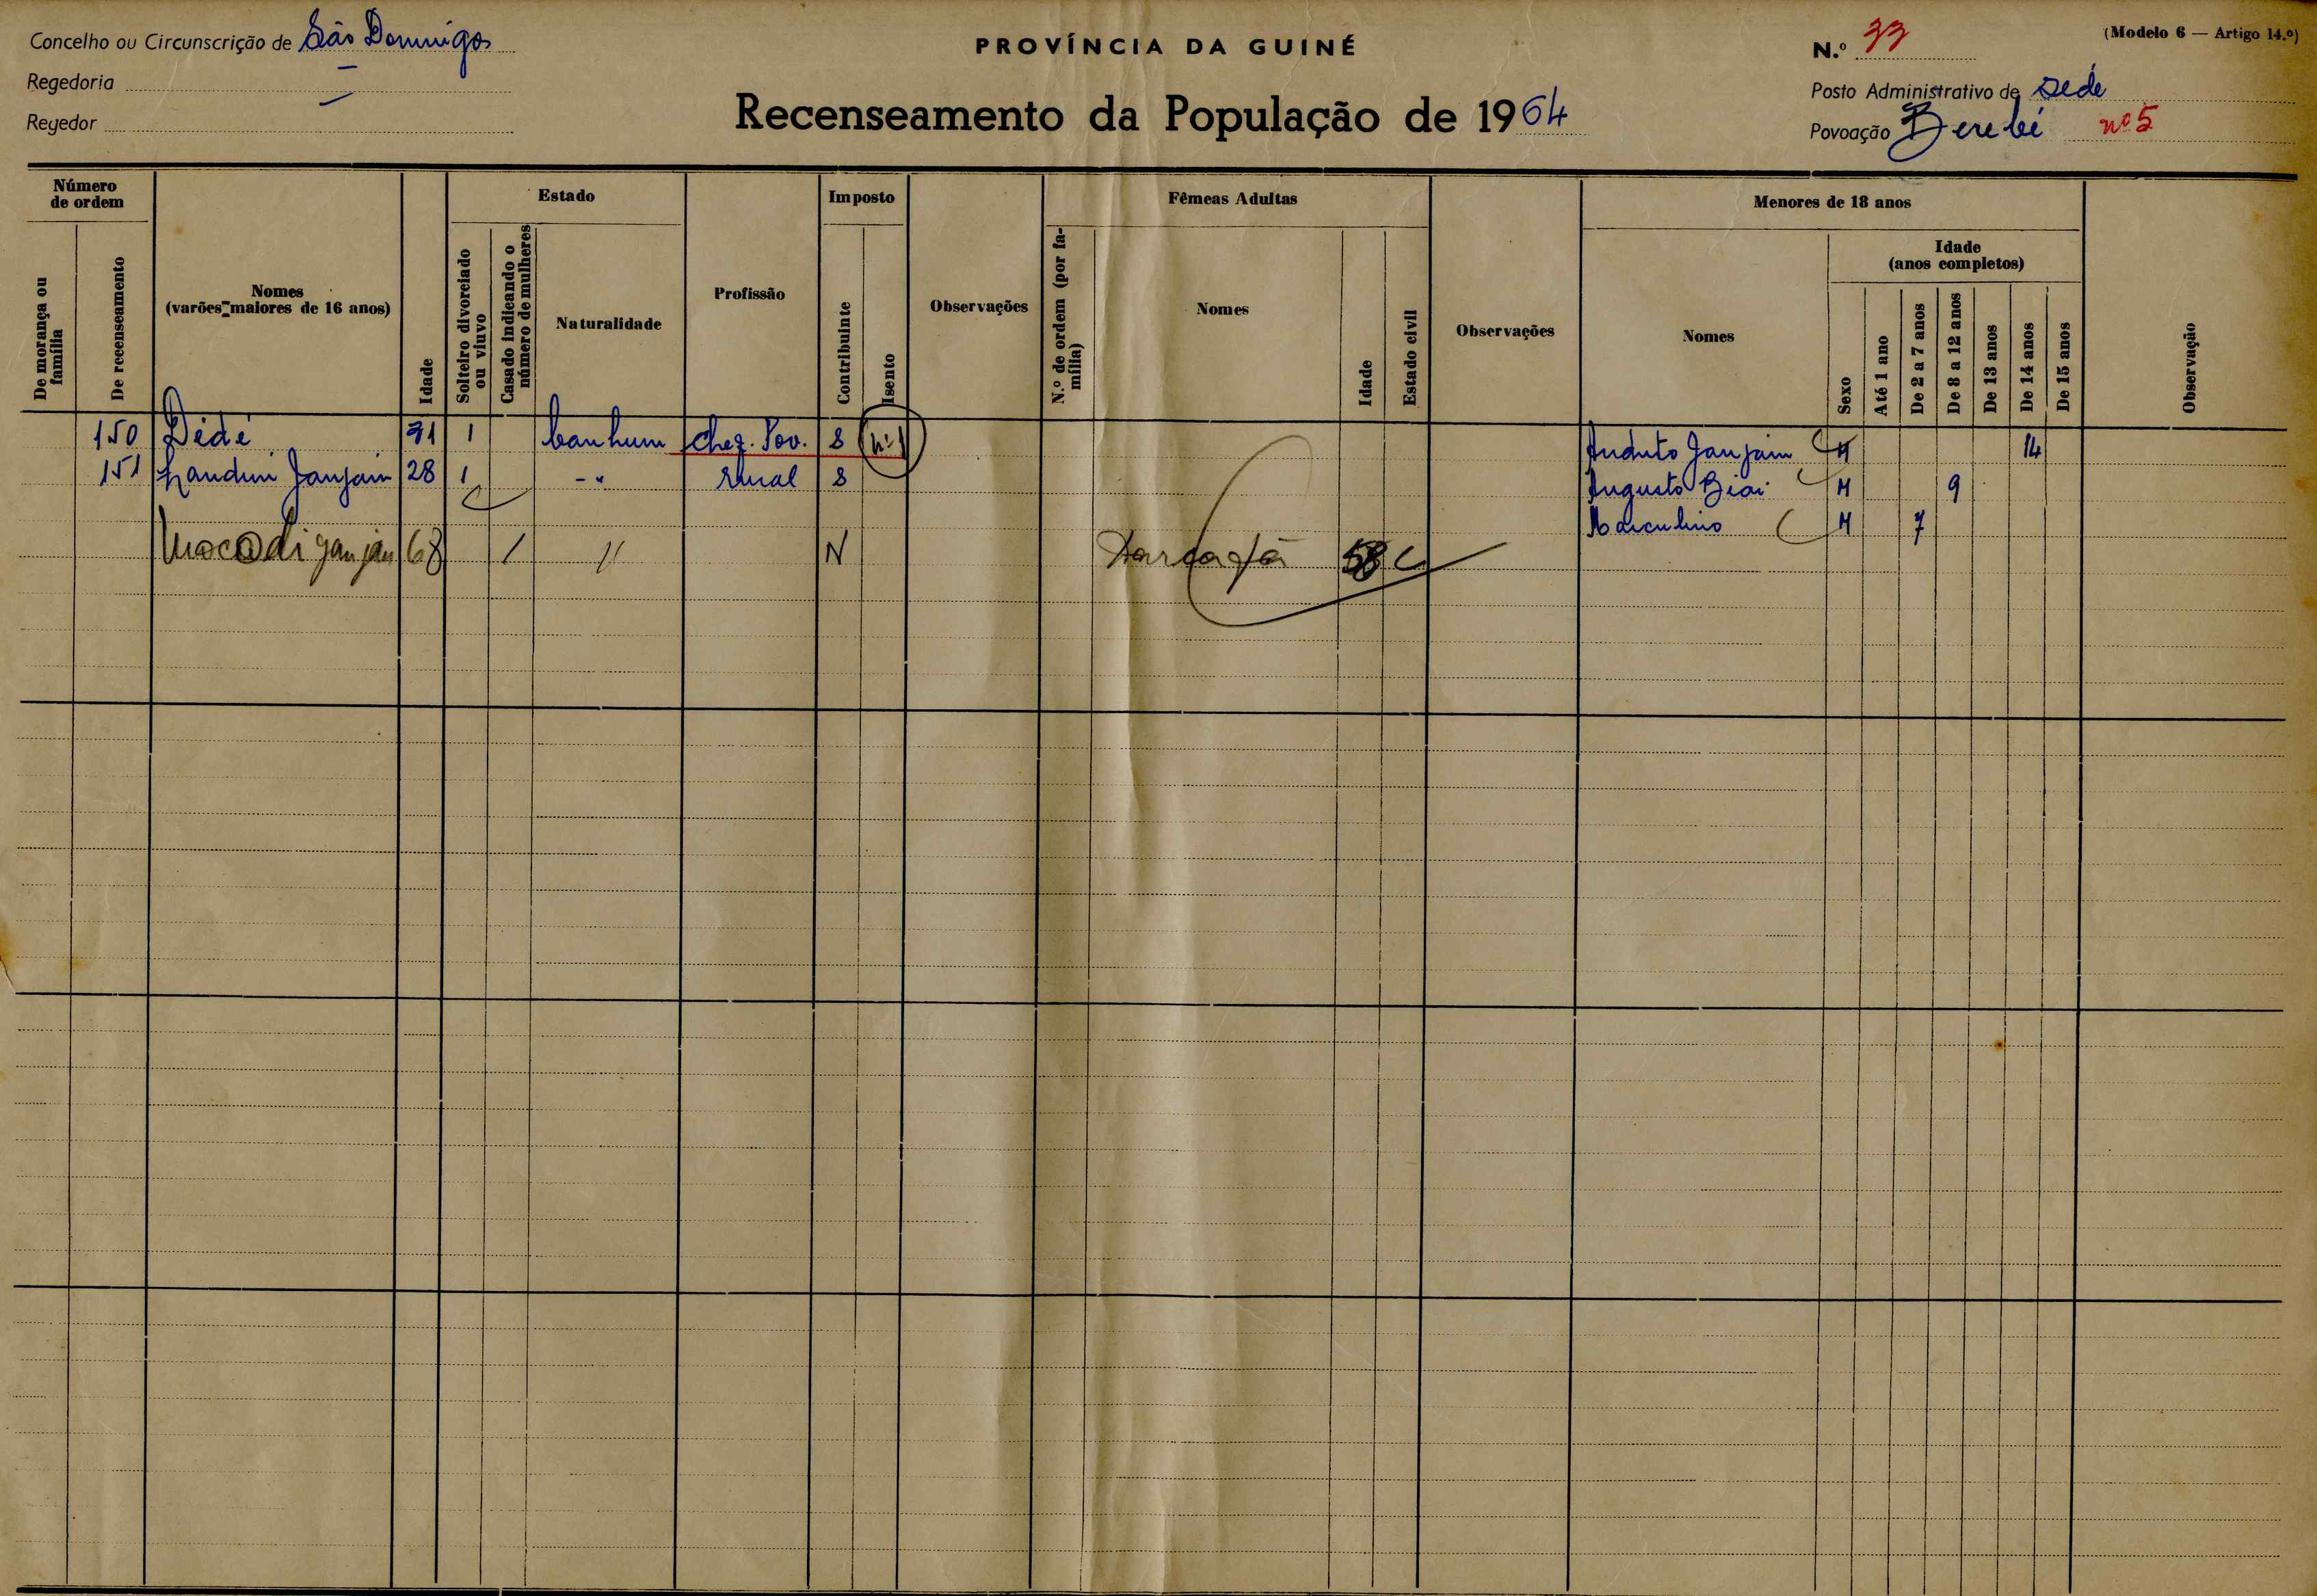 Concelho ou Circunscrição de São Domingos
Regedoria —
Regedor —
PROVÍNCIA DA GUINÉ
Recenseamento da População de 1964
(Modelo 6 — Artigo 14.º)
N.º 33
Posto Administrativo de Sede
Povoação Berebé nº 5
Número de ordem
De morança ou família
De recenseamento
Nomes
(varões maiores de 16 anos)
Idade
Estado
Solteiro divorciado ou viuvo
Casado indicando o número de mulheres
Naturalidade
Profissão
Imposto
Contribuinte
Isento
Observações
Fêmeas Adultas
N.º de ordem (por família)
Nomes
Idade
Estado civil
Observações
Menores de 18 anos
Nomes
Sexo
Idade
(anos completos)
Até 1 ano
De 2 a 7 anos
De 8 a 12 anos
De 13 anos
De 14 anos
De 15 anos
Observação
150 Dédé 31 1 banhum Cheg. Pov. S nº 1 Janjain M 14
151 Landim Janjain 28 1 -" rural S Augusto Biai M 9
Marculino M 7
Mocadi Janjan 68 1 " N 58 C